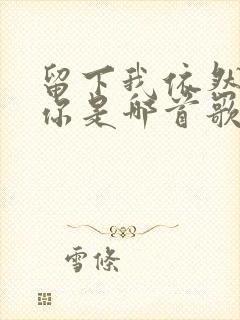 留下我依然
你是哪首歌
雪條